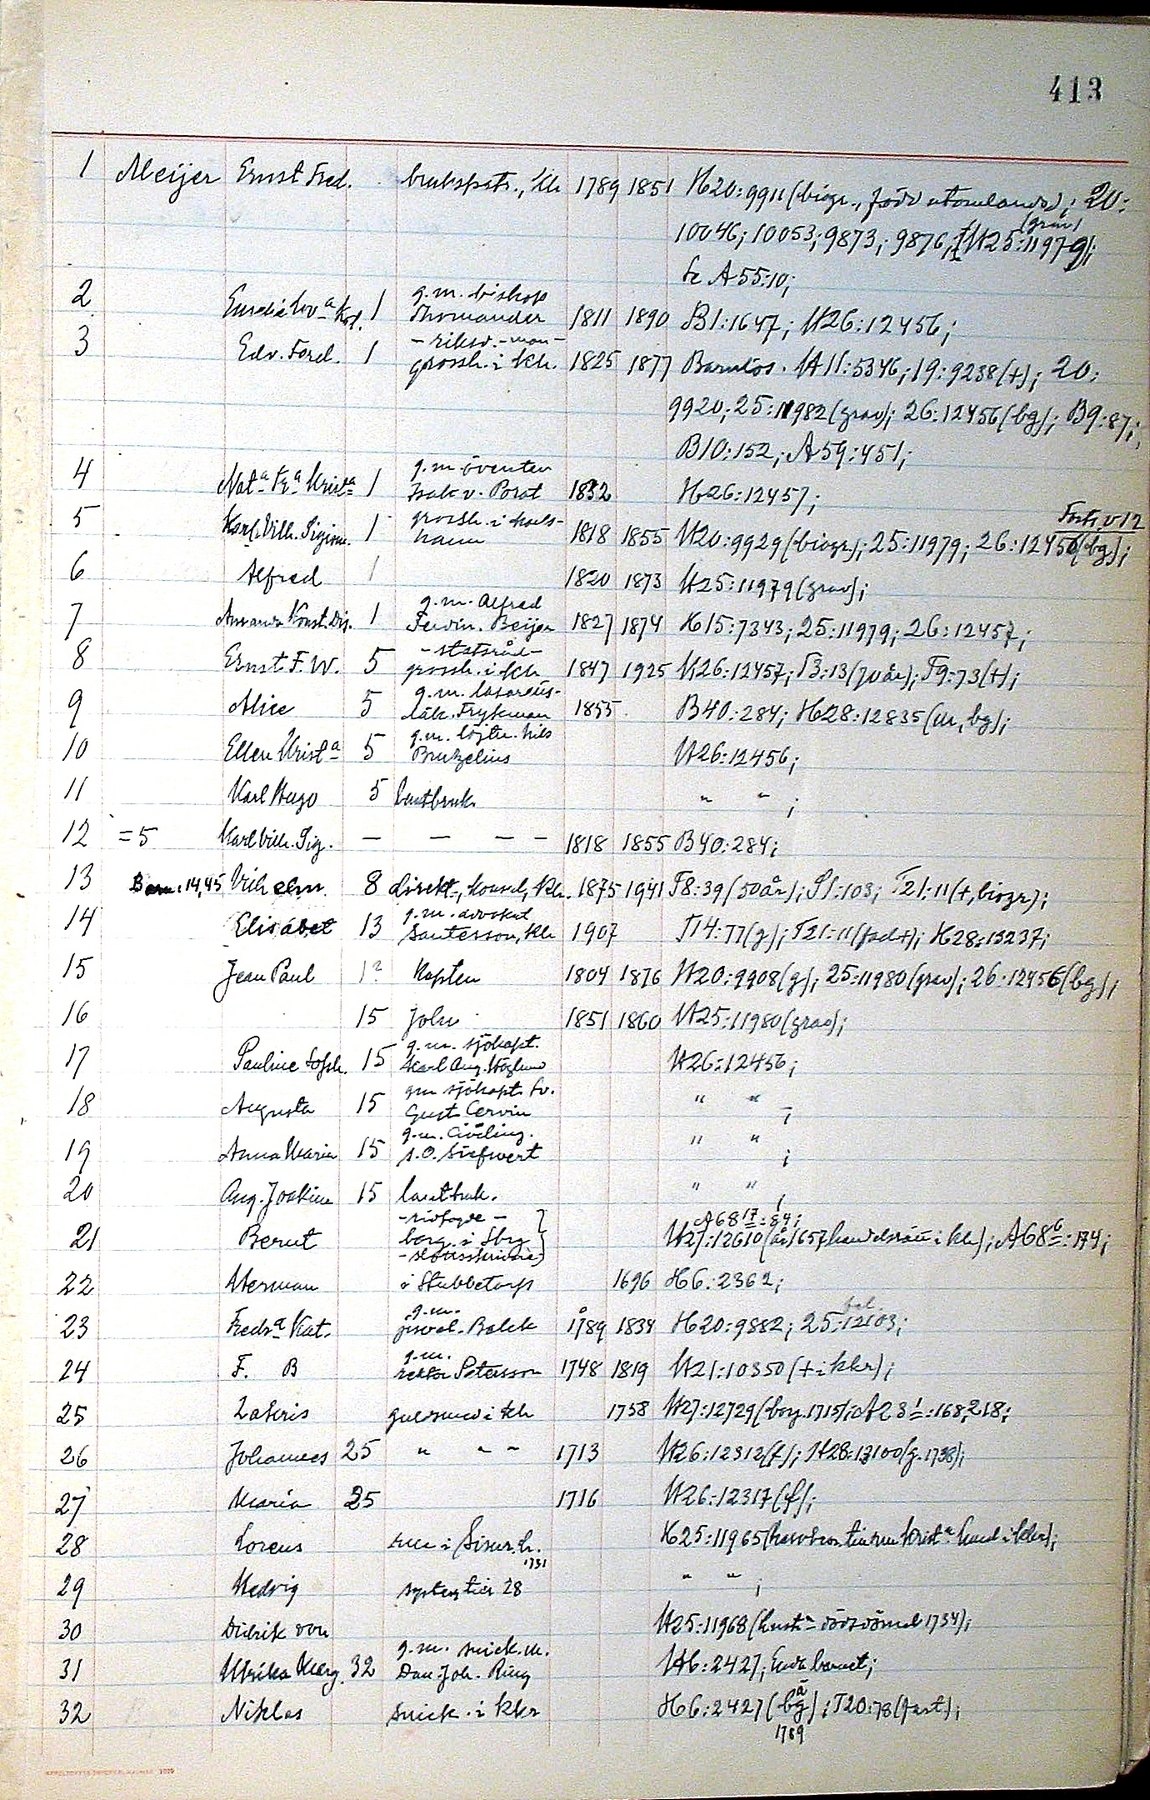 413
1 Meijer Ernst Fred. brukspatr., Kh 1789 1851 H20:9911 (biogr., född utomlands); 20:
10046; 10053; 9873; 9876; H25:11979; (grav)
A55:10;
2 Kar. 1 g.m. biskop
Thomander 1811 1890 B1:1647; H26:12456;
3 Edv. Ferd. 1 - riksd.-man -
grossh. i Kh. 1825 1877 Barnlös. H11:5346; 19:9238 (+); 20:
9920; 25:11982 (grav); 26:12456 (bg); B9:87;
B10:152; A59:451;
4 Nat-a Fr-a Krist-a 1 g.m. översten
Isak v. Porat 1832 H26:12457;
5 Karl Vilh. Sigism. 1 grossh. i Karls-
hamn 1818 1855 H20:9929 (biogr); 25:11979; 26:12456 (bg); Forts. v 12
6 Alfred 1 1820 1873 H25:11979 (grav);
7 Amanda Konst. Dis. 1 g.m. Alfred
Ferdin. Beijer 1827 1874 H15:7343; 25:11979; 26:12457;
8 Ernst F. W. 5 - statsråd -
grossh. i Kh 1847 1925 H26:12457; T3:13 (70 år); T9:73 (+);
9 Alice 5 g.m. lasaretts-
läk. Frykman 1855 B40:284; H28:12835 (m, bg);
10 Ellen Krist-a 5 g.m. löjtn. Nils
Bruzelius H26:12456;
11 Karl Hugo 5 lantbruk. " " ;
12 =5 Karl Vilh. Sig. — — — — 1818 1855 B40:284;
13 Barn: 14,45 Vilhelm 8 direkt., konsul, Kh. 1875 1941 T8:39 (50 år); S1:103; T21:11 (+, biogr);
14 Elisabet 13 g.m. advokat
Santesson, Kh 1907 T14:77 (g); T21:11 (fad +); H28:13237;
15 Jean Paul 1? Kapten 1804 1876 H20:9908 (g); 25:11980 (grav); 26:12456 (bg);
16 15 John 1851 1860 H25:11980 (grav);
17 Pauline Soph. 15 g.m. sjökapt.
Karl Aug. Haglund H26:12456;
18 Augusta 15 gm sjökapt. Sv.
Gust. Cervin " " ;
19 Anna Maria 15 g.m. civiling.
S.O. Siefwert " " ;
20 Aug. Joakim 15 lantbruk. " " ;
21 Berent - rådfogde -
borg. i Sbg
- slottsskrivare) A68 17:84;
H27:12610 (år 1657 handelsman i Kh); A68 6:174;
22 Herman i Stubbetorp 1696 H6:2362;
23 Fredr-a Kat. g.m.
juvel. Balck 1789 1834 H20:9882; 25:12103;
24 F. B g.m.
rektor Petersson 1748 1819 H21:10350 (+ i Khr);
25 Zakris guldsmed i Kh 1758 H27:12729 (borg. 1715); A23 1:168, 218;
26 Johannes 25 " " " 1713 H26:12312 (f); H28:13100 (g. 1738);
27 Maria 25 1716 H26:12317 (f);
28 Lorens
1731 H25:11965
29 Hedvig syster till 28 " " ;
30 Didrik von H25:11968 (dödsdömd 1734);
31 Ulrika Marg. 32 g.m. snick.m.
Dan. Joh. Ring H6:2427; Enda barnet;
32 Niklas snick. i Khr H6:2427 (bg å); T20:78 (fast);
1789